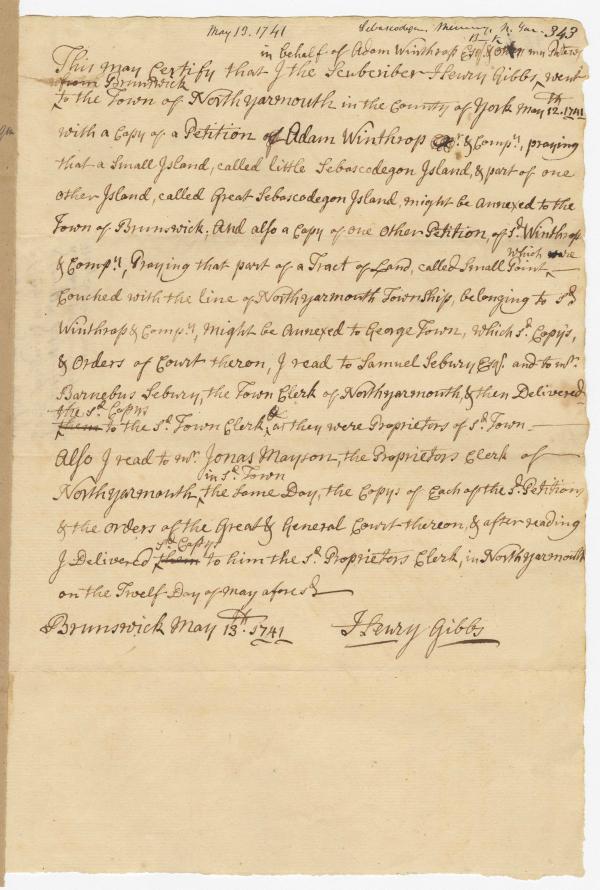 May 13. 1741
Sebascodegin. N. Yar. 343
in behalf of Adam Winthrop Esqr. &
This may Certify that I the Scubcriber Henry Gibbs, went
from Brunswick
to the Town of Northyarmouth in the County of York May 12th. 1741
with a Copy of a Petition of Adam Winthrop Esqr. & Compy., praying
that a Small Island, called little Sebascodegon Island, & part of one
other Island, called Great Sebascodegon Island, might be Annexed to the
Town of Brunswick. And also a Copy of one other Petition, of sd. Winthrop
which were
& Compy., Praying that part of a Tract of Land, called Small Point
Couched with the line of Northyarmouth Township, belonging to sd.
Winthrop & Compy., might be Annexed to George Town, which sd. Copys,
& Orders of Court theron, I read to Samuel Sebury Esqr. and to mr.
Barnebus Sebury, the Town Clerk of Northyarmouth, & then Delivered
the sd. Copys
them to the sd. Town Clerk, as they were Proprietors of sd. Town
Also I read to mr. Jonas Mayson, the Proprietors Clerk of
in sd. Town
Northyarmouth, the Same Day, the Copys of Each of the sd. Petitions
& the orders of the Great & General Court thereon, & after reading
sd. Copys
I Delivered them to him the sd. Proprietors Clerk, in Northyarmouth
on the Twelf Day of May aforesd.
Brunswick May 13th. 1741 Henry Gibbs